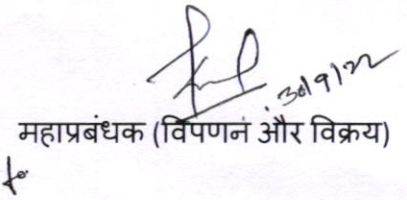 30/9/22
महाप्रबंधक (विपणन और विक्रय)